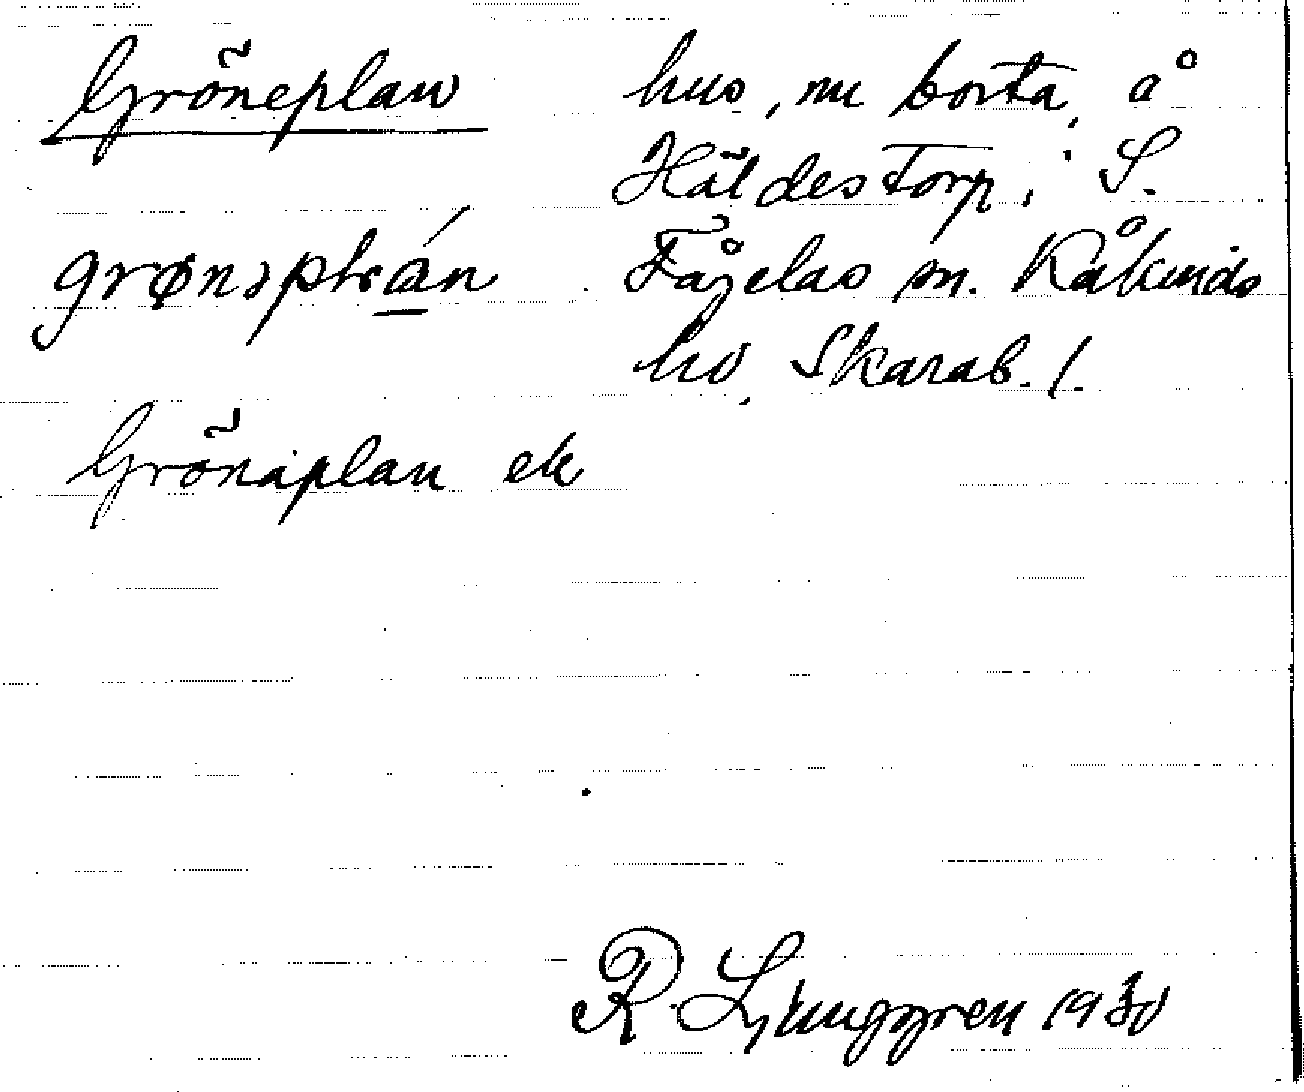 Gröneplan hus, nu borta, å
Häldestorp, i S.
Fågelås sn. Kåkinds
hd, Skarab. l.
Grönaplan ek
R. Ljunggren 1930